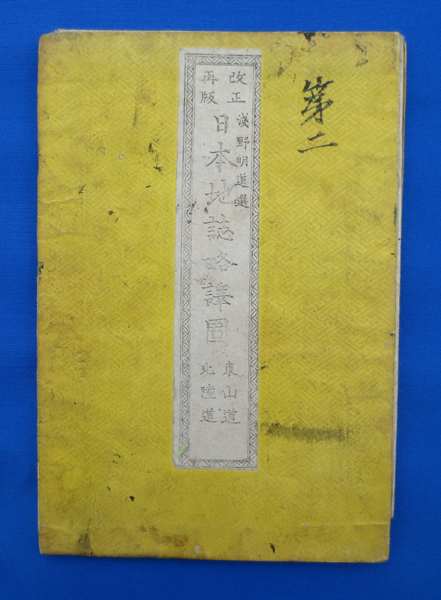 第二
改正
再版
浅野明道選
日本地誌略譯圖
東山道
北陸道